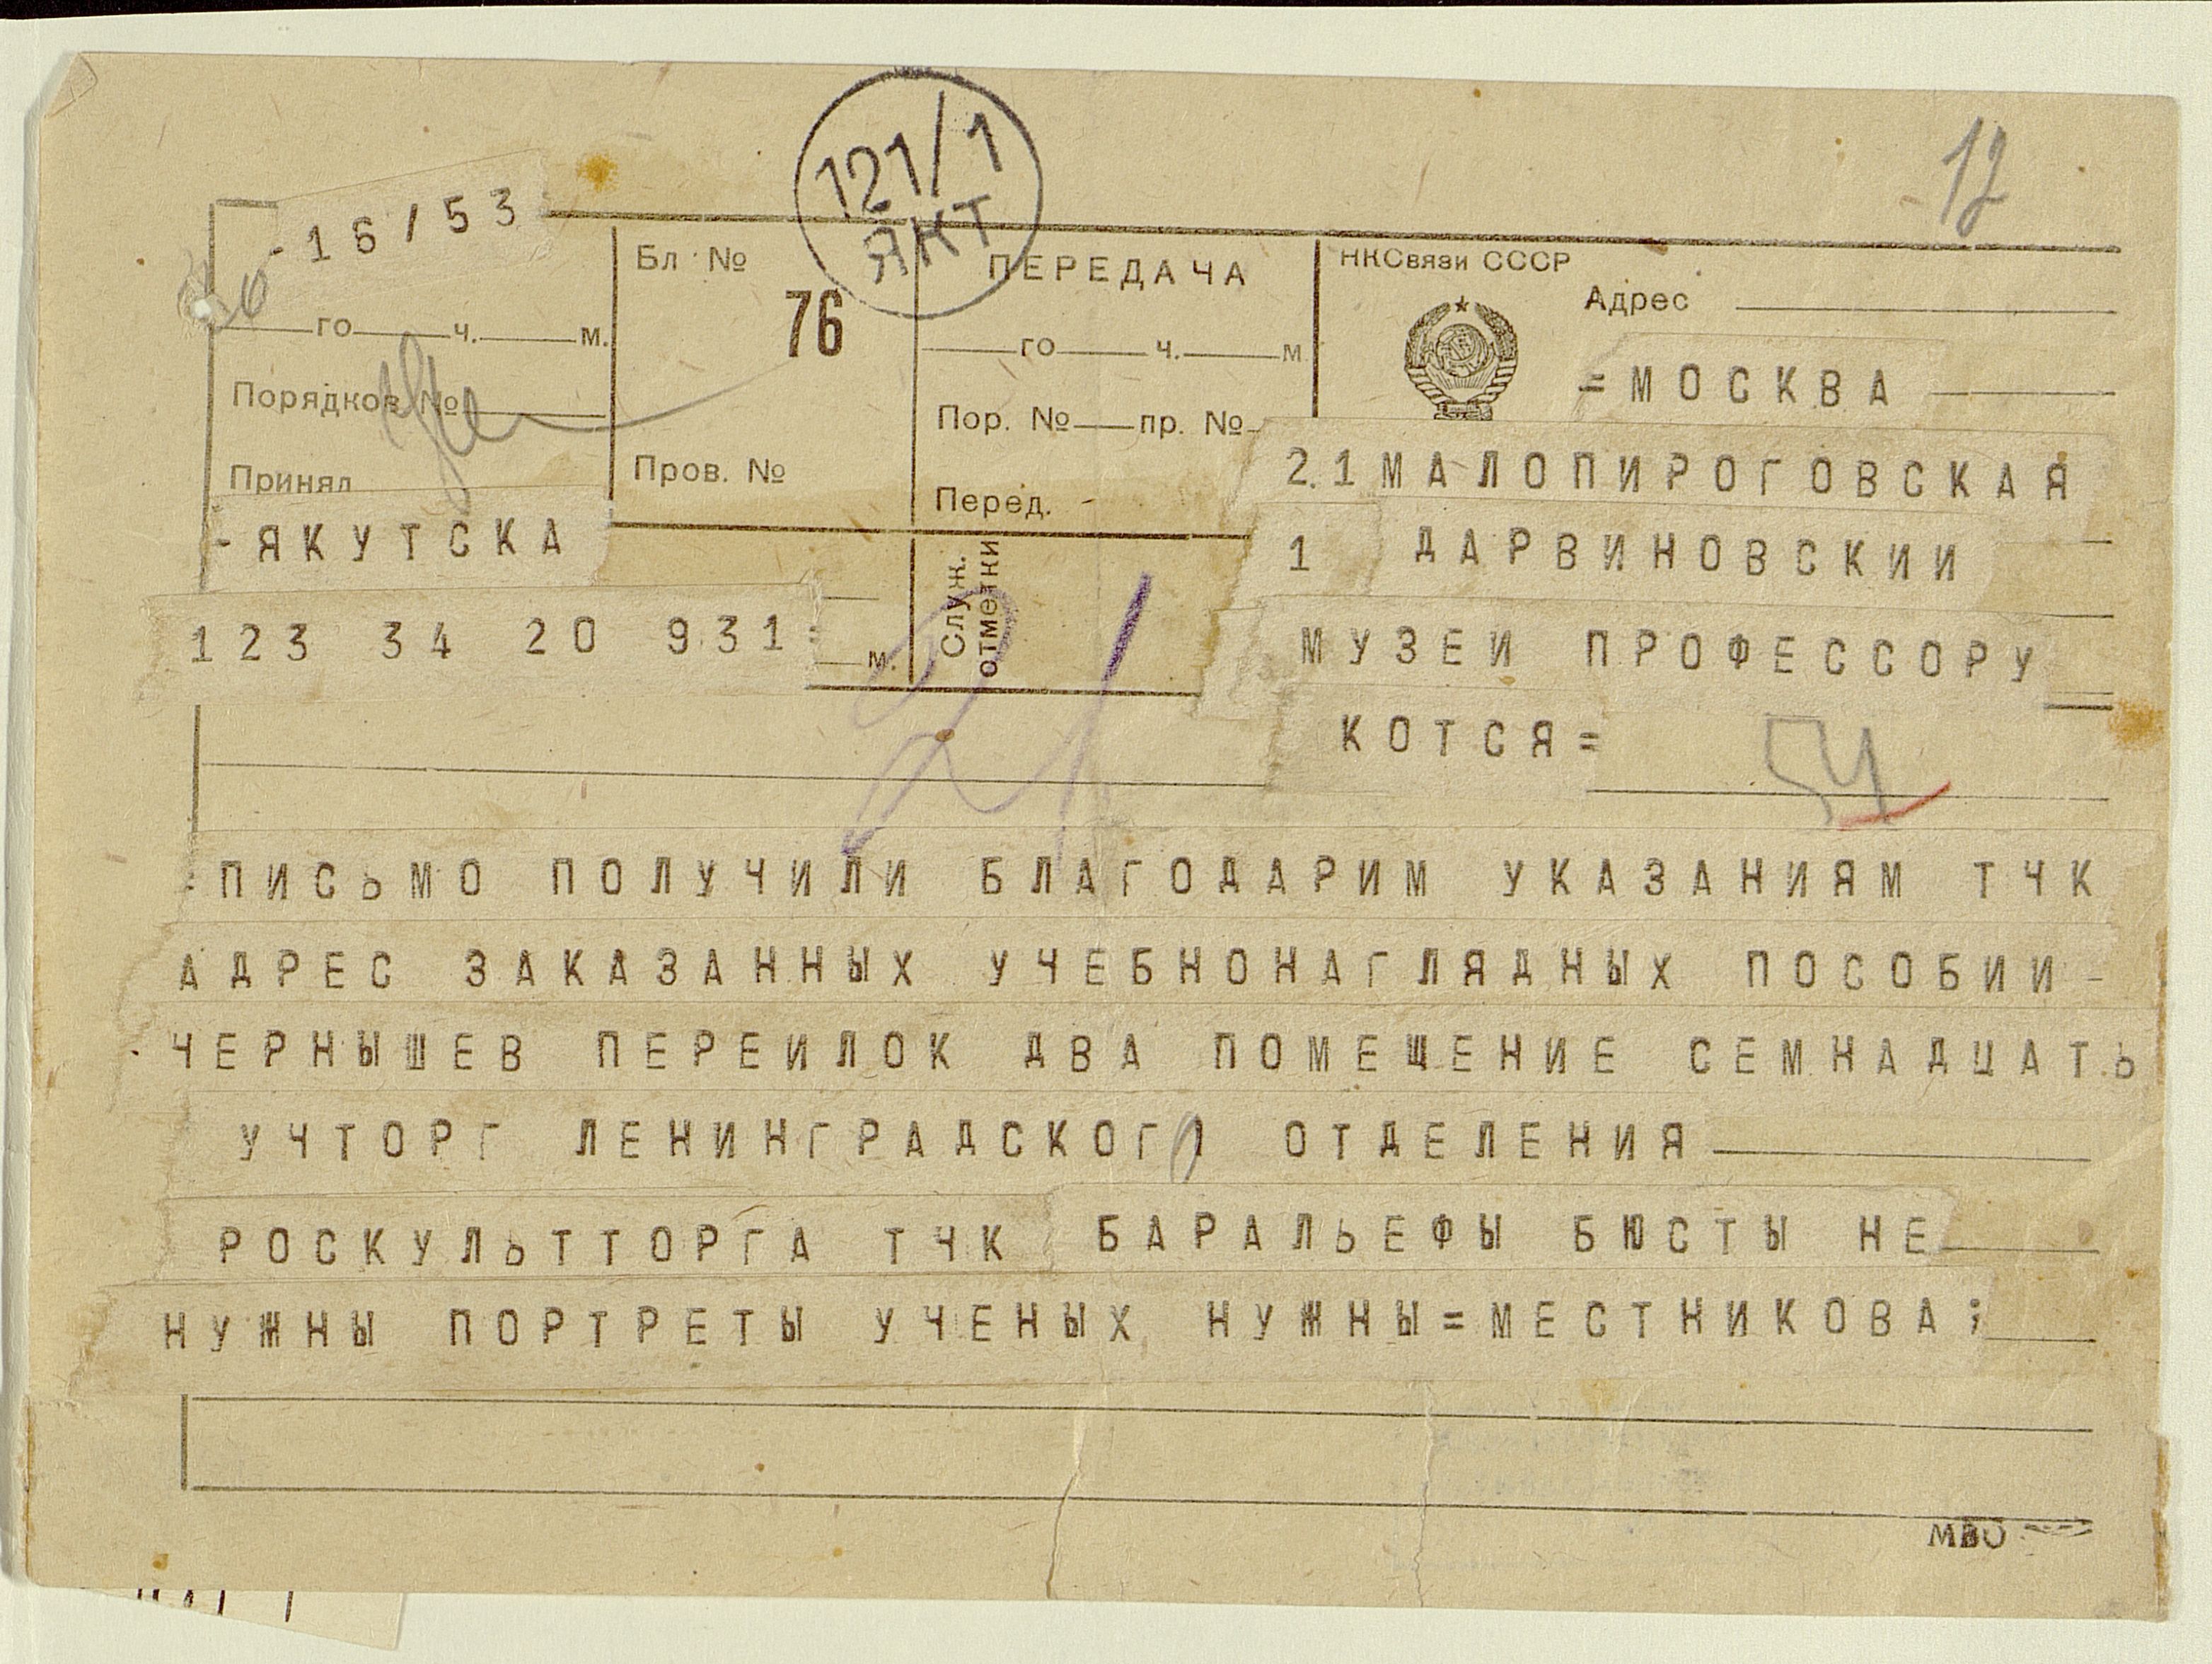 121/1
ЯКТ
12
-16/53
го ч. м.
Порядков №
Принял
-ЯКУТСКА
123 34 20 931=
м.
Бл №
76
Пров. №
ПЕРЕДАЧА
го ч. м
Пор. № пр. №
Перед.
Служ.
отметки
21
НКСвязи СССР
Адрес
=МОСКВА
2.1 МАЛОПИРОГОВСКАЯ
1 ДАРВИНОВСКИИ
МУЗЕИ ПРОФЕССОРУ
КОТСЯ=
54
=ПИСЬМО ПОЛУЧИЛИ БЛАГОДАРИМ УКАЗАНИЯМ ТЧК
АДРЕС ЗАКАЗАННЫХ УЧЕБНОНАГЛЯДНЫХ ПОСОБИИ-
ЧЕРНЫШЕВ ПЕРЕИЛОК ДВА ПОМЕЩЕНИЕ СЕМНАДЦАТЬ
УЧТОРГ ЛЕНИНГРАДСКОГО ОТДЕЛЕНИЯ
РОСКУЛЬТТОРГА ТЧК БАРАЛЬЕФЫ БЮСТЫ НЕ
НУЖНЫ ПОРТРЕТЫ УЧЕНЫХ НУЖНЫ=МЕСТНИКОВА;
МВО